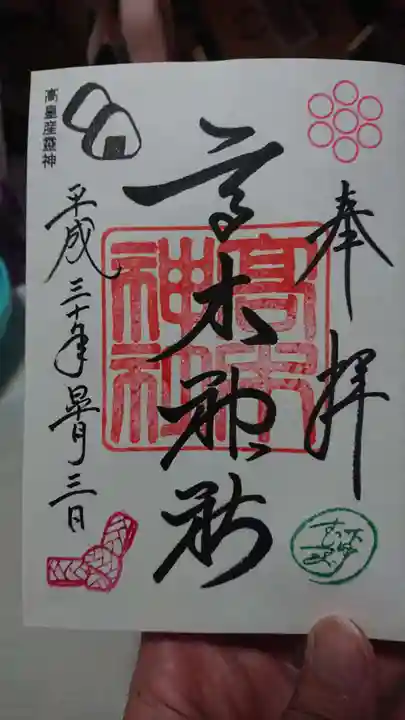 奉拝
高木神社
高木神社
高皇産靈神
平成三十年皐月三日